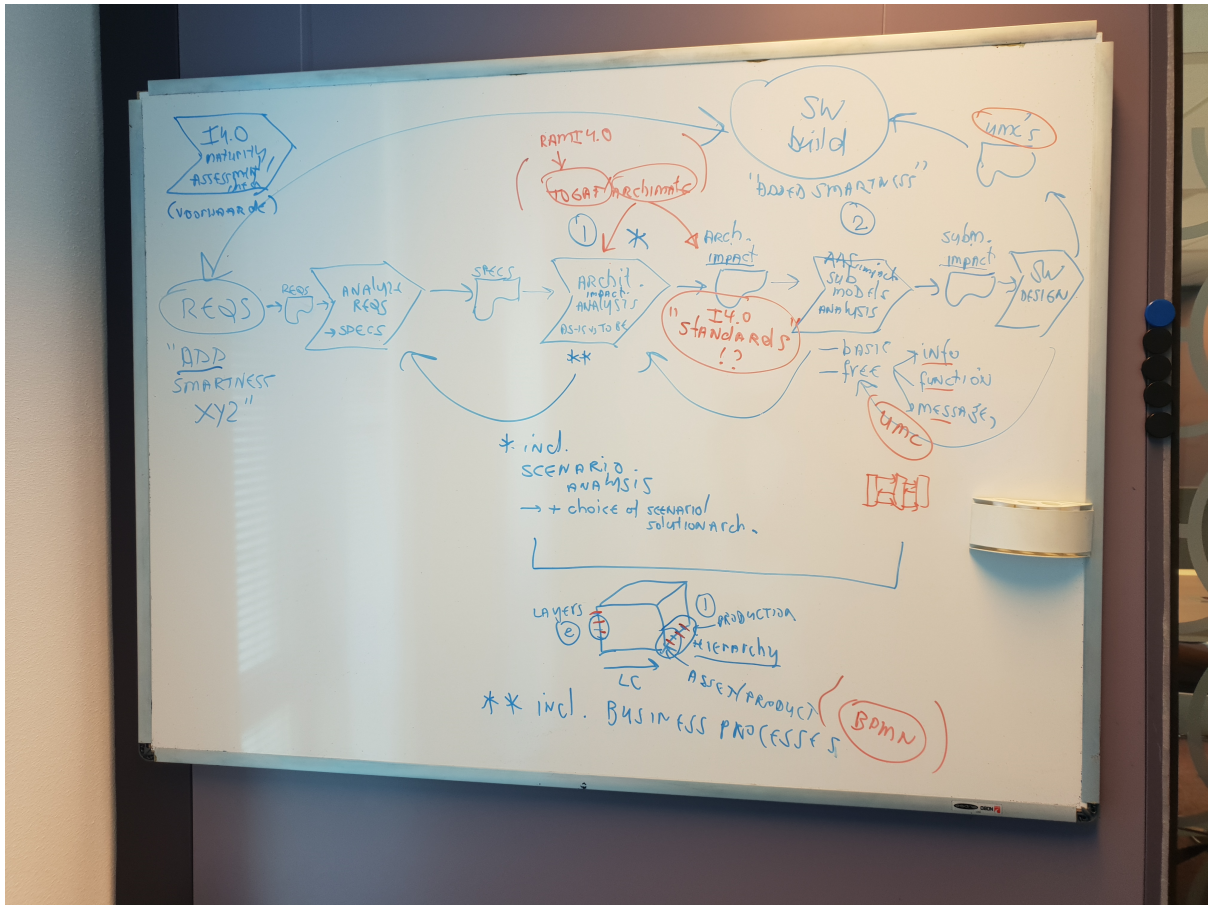 I4.0
MATURITY
ASSESSMENT
(VOORWAARDE)
RAMI4.0
TOGAF/ARCHIMATE
SW
build
"ADDED SMARTNESS"
UMC's
1
*
2
REQS
REQS
ANALYZE
REQS
→ SPECS
SPECS
ARCHIT.
IMPACT
ANALYSIS
AS-IS vs TO BE
**
ARCH.
IMPACT
AAS impact
SUB
MODELS
ANALYSIS
SUBM.
IMPACT
SW
DESIGN
"I4.0
STANDARDS"
!?
"ADD
SMARTNESS
XYZ"
— BASIC
— FREE
INFO
FUNCTION
MESSAGE,
UMC
* incl.
SCENARIO
ANALYSIS
→ + choice of SCENARIO/
SOLUTION ARCH.
LAYERS
2
1
PRODUCTION
HIERARCHY
ASSET/PRODUCT
LC
** incl. BUSINESS PROCESSES
(BPMN)